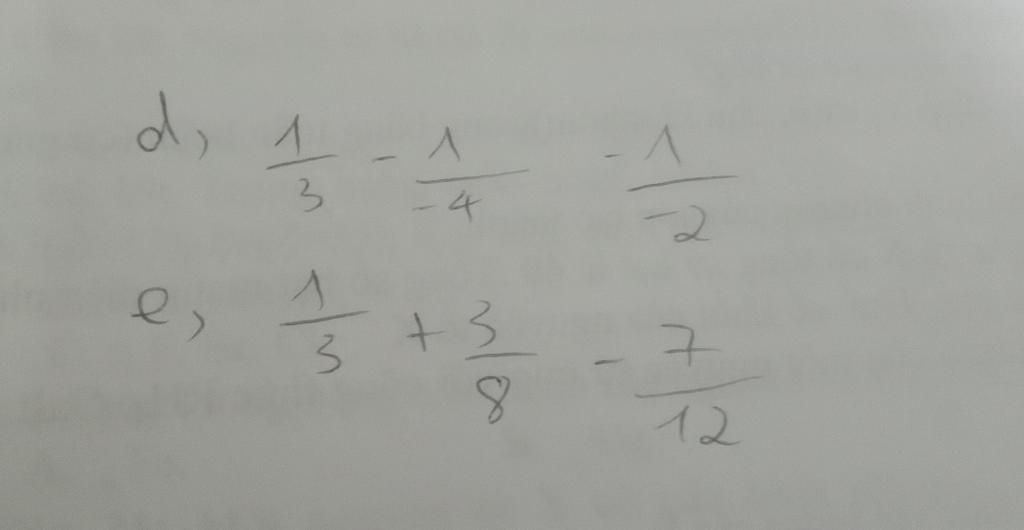 d, 1/3 - 1/-4 - 1/-2
e, 1/3 + 3/8 - 7/12